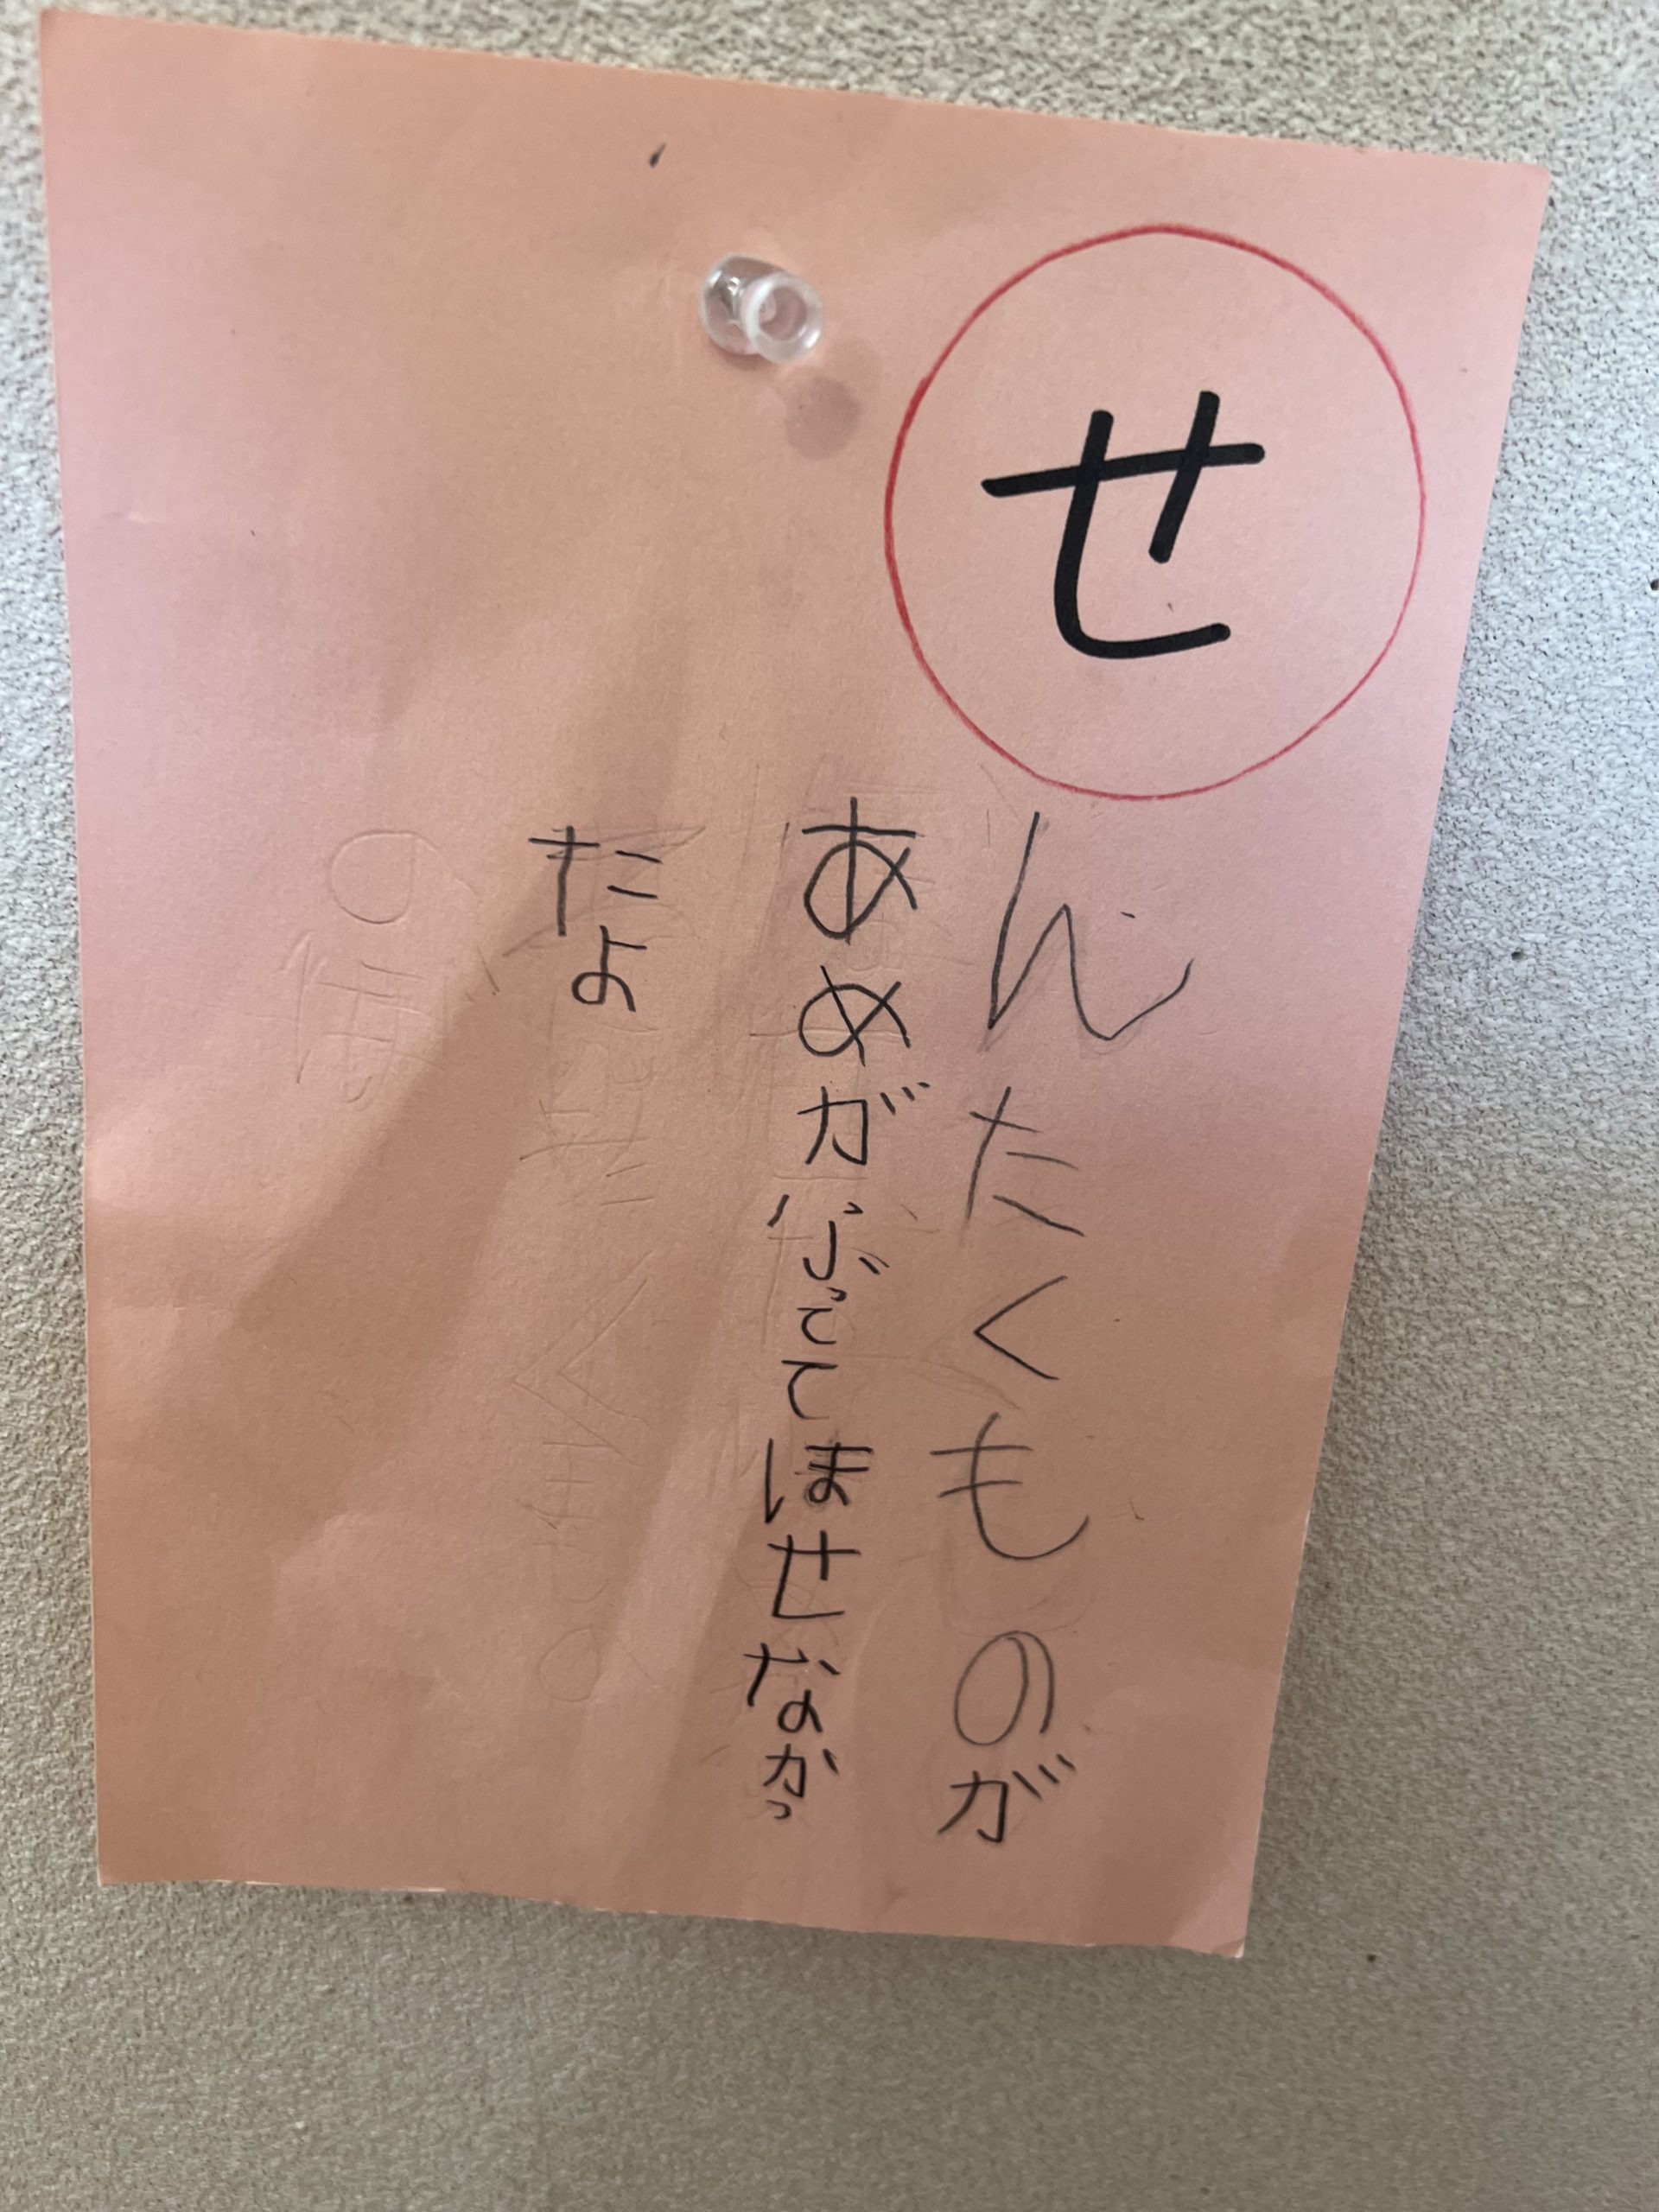 せ
んたくものが
あめがふってほせなかっ
たよ